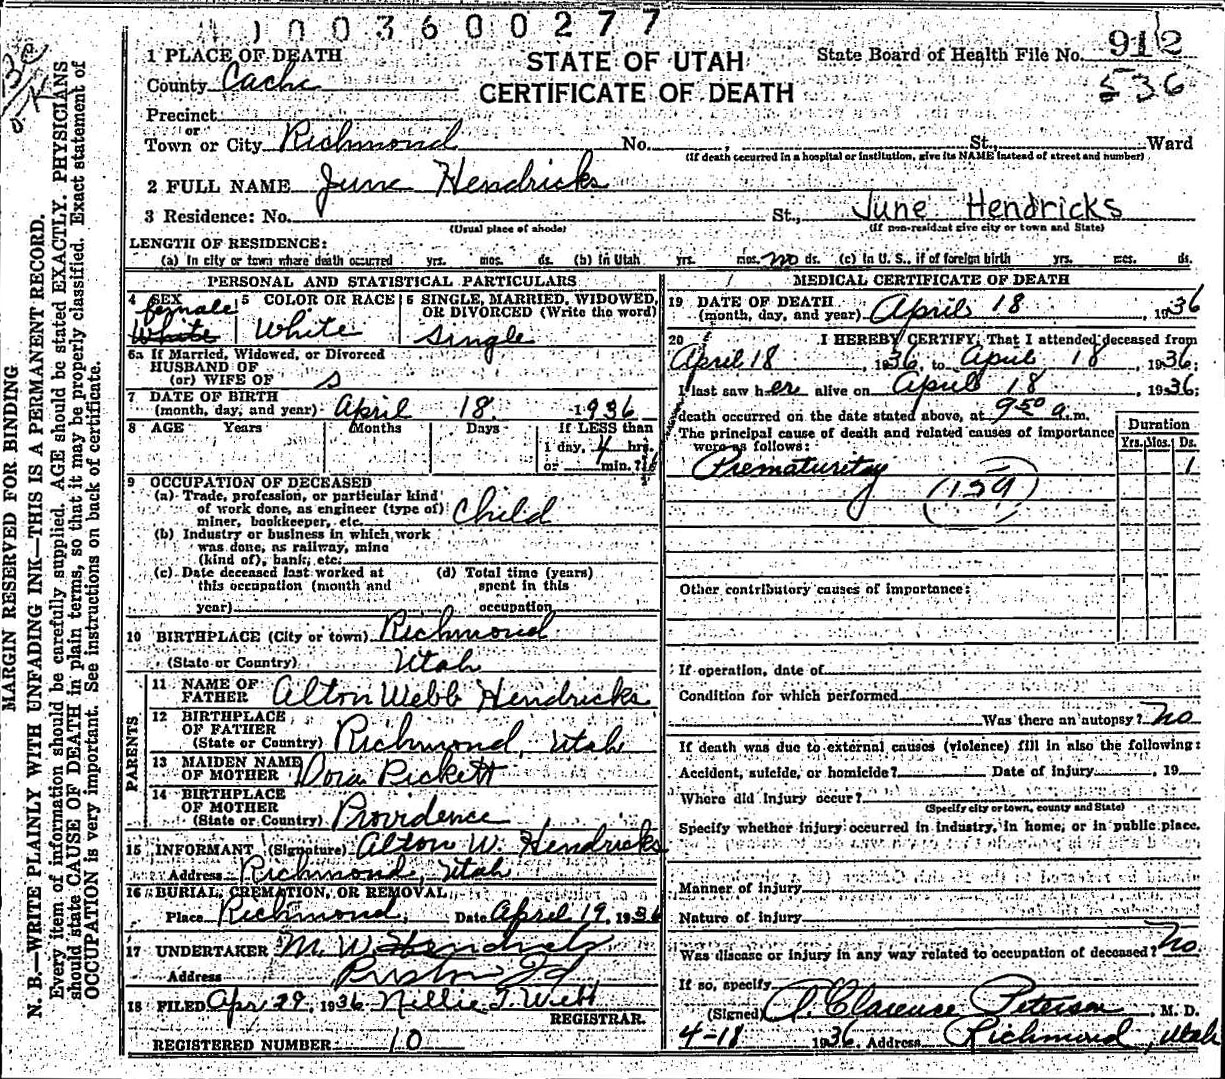 1003600277
1 PLACE OF DEATH
County Cache
STATE OF UTAH
CERTIFICATE OF DEATH
State Board of Health File No. 912
536
Precinct
or
Town or City Richmond No. , St., Ward
(If death occurred in a hospital or institution, give its NAME instead of street and number)
2 FULL NAME June Hendricks
3 Residence: No. St., June Hendricks
(Usual place of abode) (If non-resident give city or town and State)
LENGTH OF RESIDENCE:
(a) In city or town where death occurred yrs. mos. ds. (b) in Utah yrs. mos. no ds. (c) in U. S., if of foreign birth yrs. mos. ds.
MARGIN RESERVED FOR BINDING
N. B.—WRITE PLAINLY WITH UNFADING INK—THIS IS A PERMANENT RECORD.
Every item of information should be carefully supplied. AGE should be stated EXACTLY. PHYSICIANS
should state CAUSE OF DEATH in plain terms, so that it may be properly classified. Exact statement of
OCCUPATION is very important. See instructions on back of certificate.
PERSONAL AND STATISTICAL PARTICULARS
4 SEX female White
5 COLOR OR RACE White
6 SINGLE, MARRIED, WIDOWED,
OR DIVORCED (Write the word)
Single
6a If Married, Widowed, or Divorced
HUSBAND OF
(or) WIFE OF s
7 DATE OF BIRTH
(month, day, and year) April 18. 1936
8 AGE Years Months Days If LESS than
1 day, 4 hrs.
or min.?
9 OCCUPATION OF DECEASED
(a) Trade, profession, or particular kind
of work done, as engineer (type of)
miner, bookkeeper, etc. Child
(b) Industry or business in which work
was done, as railway, mine
(kind of), bank, etc.
(c) Date deceased last worked at
this occupation (month and
year)
(d) Total time (years)
spent in this
occupation
10 BIRTHPLACE (City or town) Richmond
(State or Country) Utah
PARENTS
11 NAME OF
FATHER Alton Webb Hendricks
12 BIRTHPLACE
OF FATHER
(State or Country) Richmond, Utah
13 MAIDEN NAME
OF MOTHER Dora Rickett
14 BIRTHPLACE
OF MOTHER
(State or Country) Providence
15 INFORMANT (Signature) Alton W. Hendricks
Address Richmond, Utah
16 BURIAL, CREMATION, OR REMOVAL
Place Richmond, Date April 19, 1936
17 UNDERTAKER M. W. Hendricks
Address Preston Id
18 FILED Apr 29, 1936 Nellie T. Webb
REGISTRAR.
REGISTERED NUMBER 10
MEDICAL CERTIFICATE OF DEATH
19 DATE OF DEATH
(month, day, and year) April 18, 1936
20 I HEREBY CERTIFY, That I attended deceased from
April 18, 1936, to April 18, 1936;
I last saw her alive on April 18, 1936;
death occurred on the date stated above, at 9 50 a. m.
The principal cause of death and related causes of importance
were as follows:
Duration
Yrs. Mos. Ds.
Prematurity 1
(159)
Other contributory causes of importance:
If operation, date of
Condition for which performed
Was there an autopsy? No
If death was due to external causes (violence) fill in also the following:
Accident, suicide, or homicide? Date of injury , 19
Where did injury occur?
(Specify city or town, county and State)
Specify whether injury occurred in industry, in home, or in public place.
Manner of injury
Nature of injury
Was disease or injury in any way related to occupation of deceased? No
If so, specify
(Signed) Clarence Peterson, M. D.
4-18 1936. Address Richmond, Utah